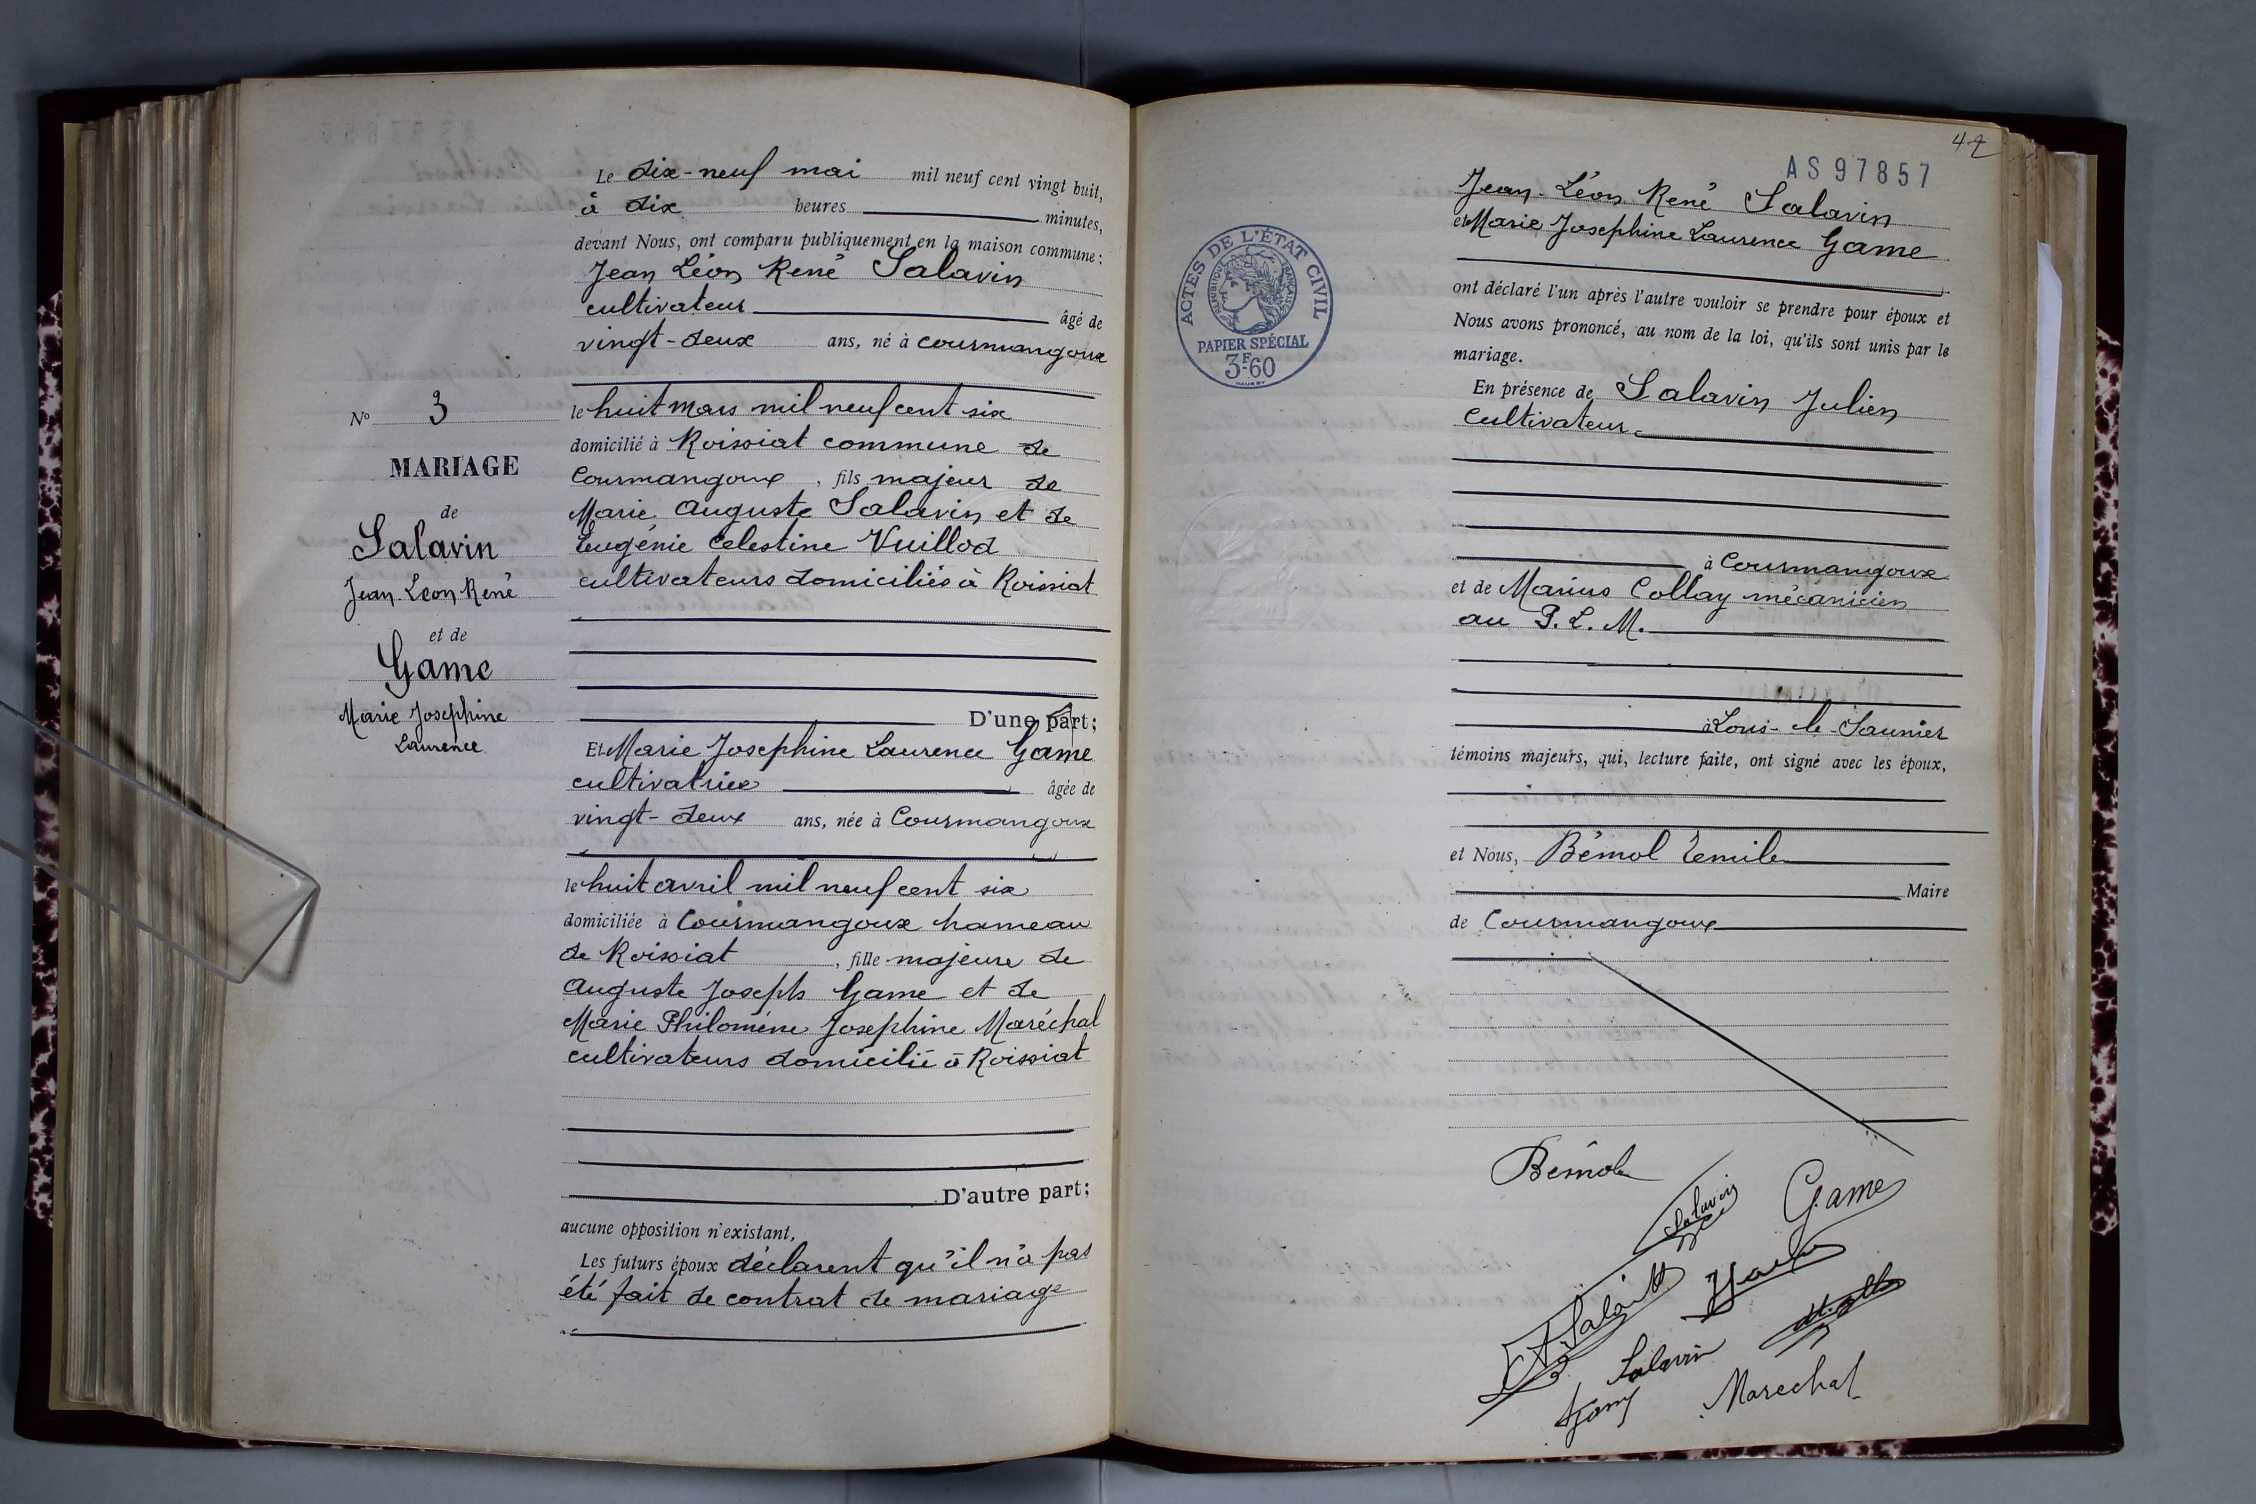 Le dix-neuf mai mil neuf cent vingt huit,
à dix heures minutes,
devant Nous, ont comparu publiquement en la maison commune :
Jean Léon René Salavin
cultivateur âgé de
vingt-deux ans, né à Courmangoux
le huit mars mil neuf cent six
domicilié à Roissiat commune de
Courmangoux, fils majeur de
Marie Auguste Salavin et de
Eugénie Celestine Vuillod
cultivateurs domiciliés à Roissiat
D'une part;
Et Marie Josephine Laurence Game
cultivatrice âgée de
vingt-deux ans, née à Courmangoux
le huit avril mil neuf cent six
domiciliée à Courmangoux hameau
de Roissiat, fille majeure de
Auguste Joseph Game et de
Marie Philomène Josephine Maréchal
cultivateurs domicilié à Roissiat
D'autre part;
aucune opposition n'existant,
Les futurs époux déclarent qu'il n'a pas
été fait de contrat de mariage
No 3
MARIAGE
de
Salavin
Jean Leon René
et de
Game
Marie Josephine
Laurence
42
AS 97857
ACTES DE L'ÉTAT CIVIL
RÉPUBLIQUE FRANÇAISE
PAPIER SPÉCIAL
3F60
Jean-Léon René Salavin
et Marie Josephine Laurence Game
ont déclaré l'un après l'autre vouloir se prendre pour époux et
Nous avons prononcé, au nom de la loi, qu'ils sont unis par le
mariage.
En présence de Salavin Julien
Cultivateur
à Courmangoux
et de Marius Collay mécanicien
au P. L. M.
à Lons-le-Saunier
témoins majeurs, qui, lecture faite, ont signé avec les époux,
et Nous, Bémol Emile
Maire
de Courmangoux
Bémol
Salavin
Game
Salavin
Marechal